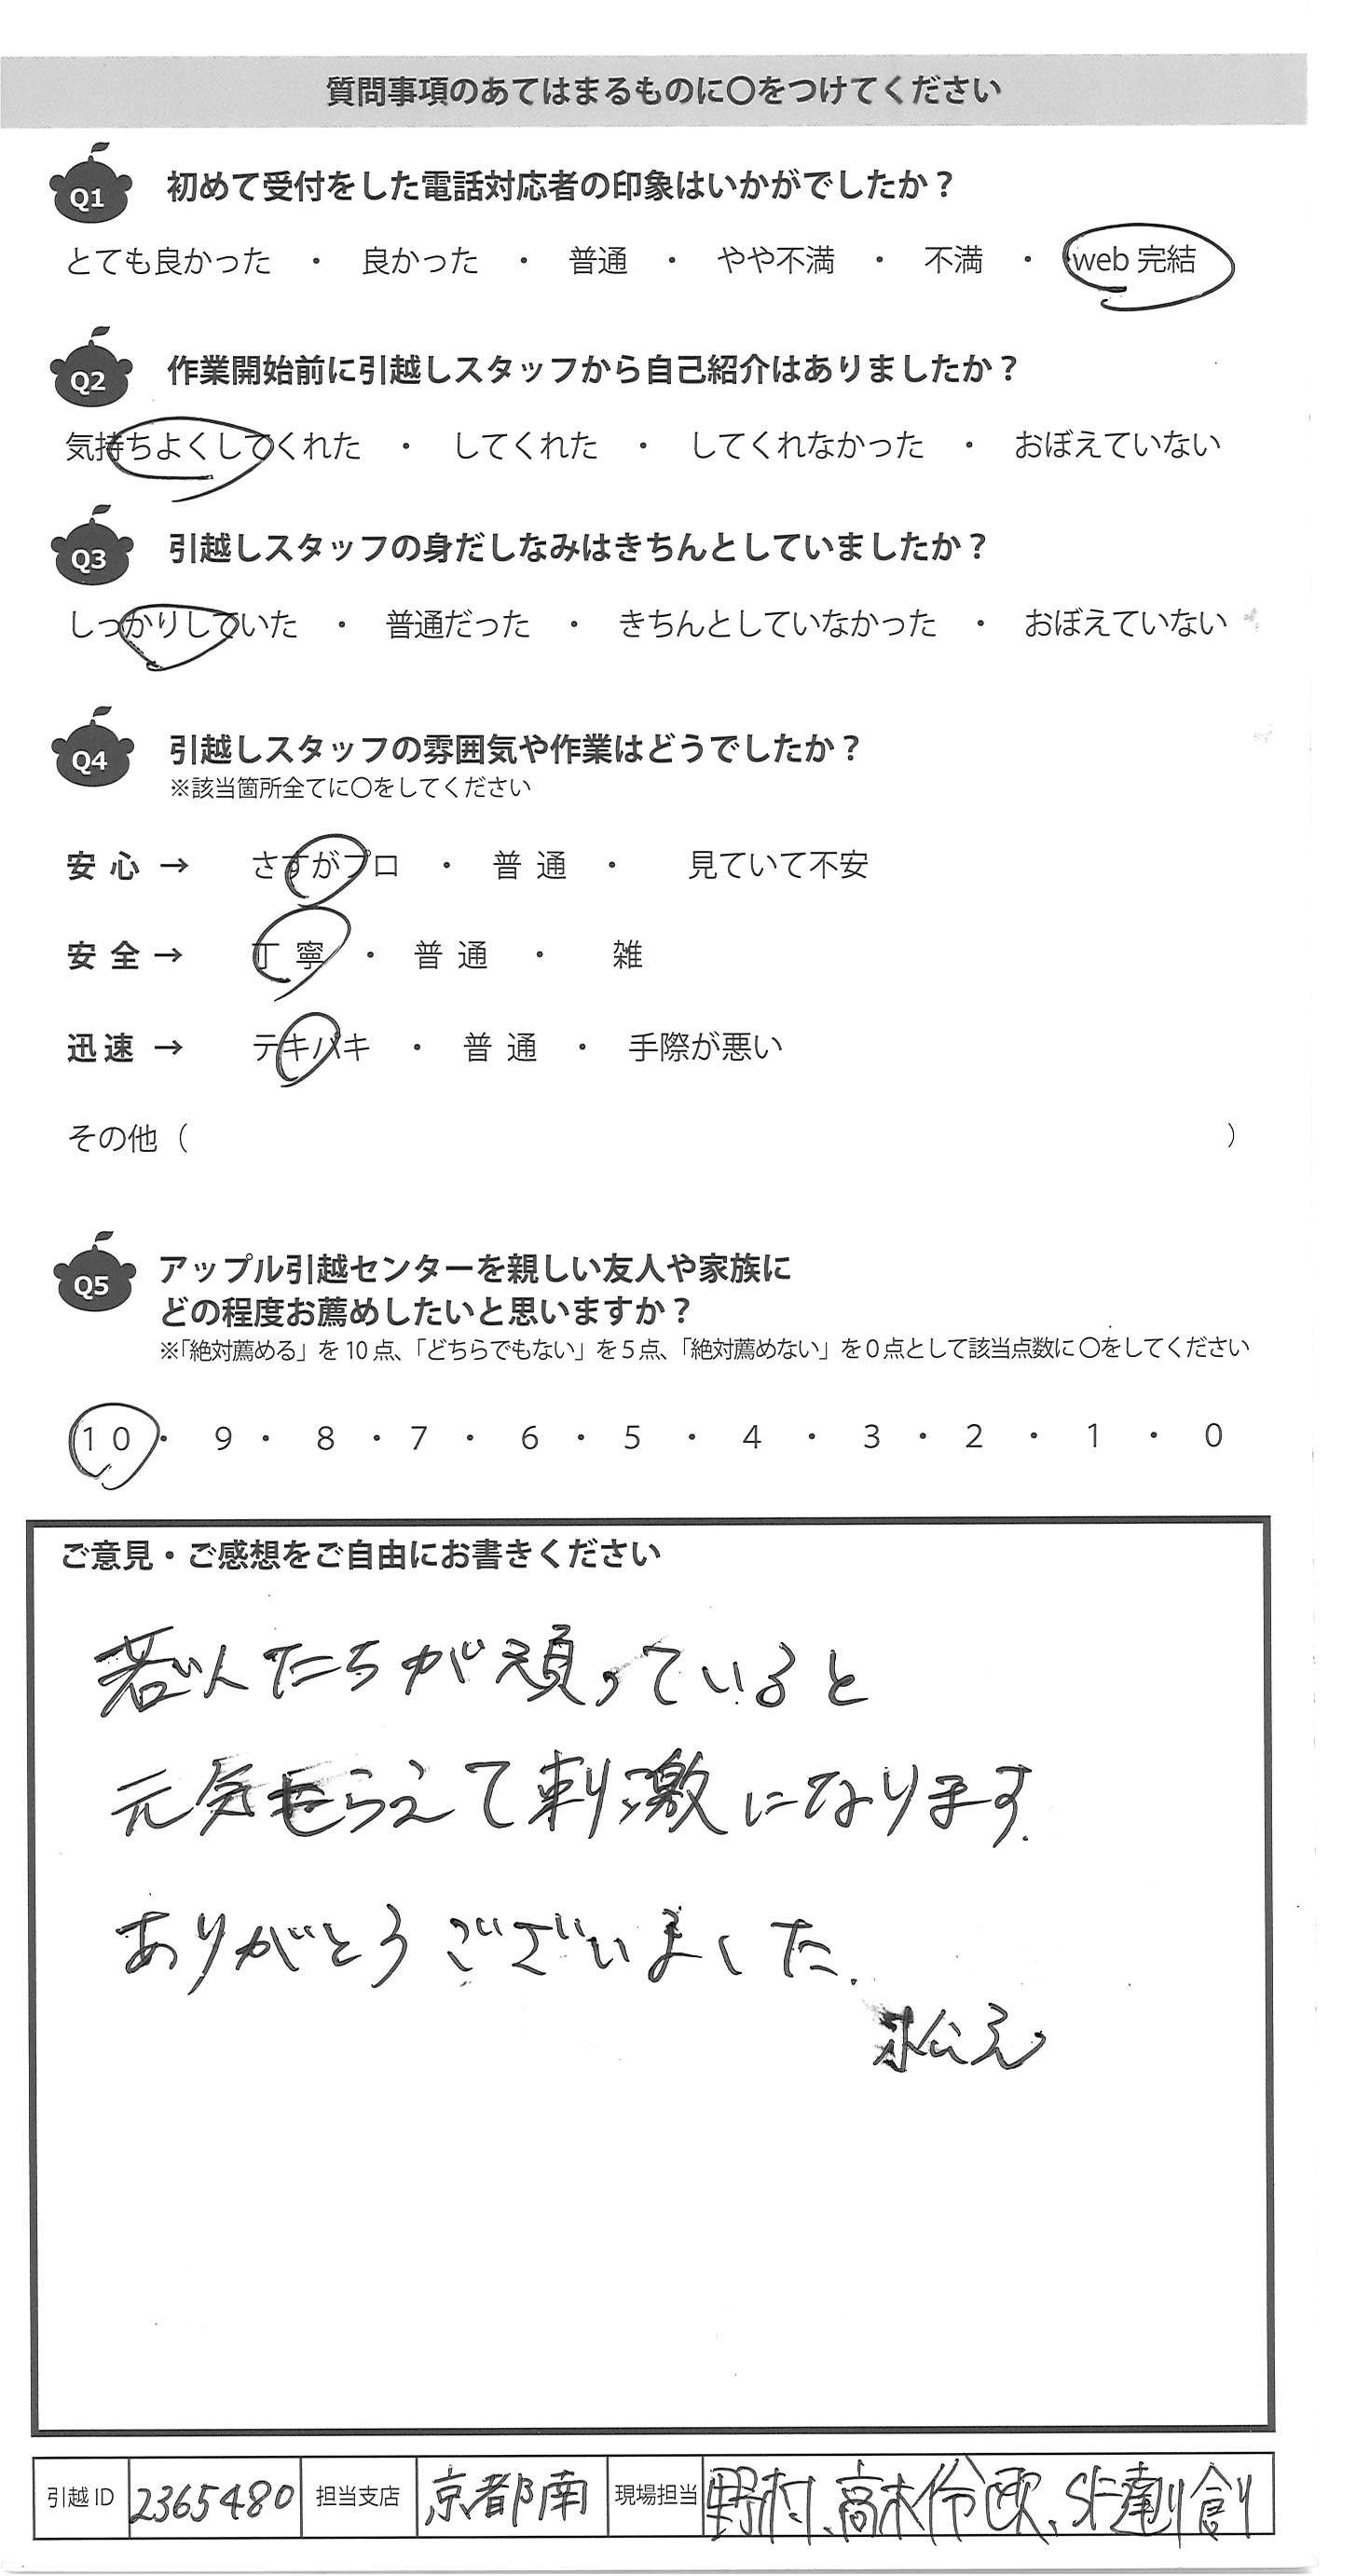 質問事項のあてはまるものに〇をつけてください
Q1 初めて受付をした電話対応者の印象はいかがでしたか？
とても良かった ・ 良かった ・ 普通 ・ やや不満 ・ 不満 ・ web 完結
Q2 作業開始前に引越しスタッフから自己紹介はありましたか？
気持ちよくしてくれた ・ してくれた ・ してくれなかった ・ おぼえていない
Q3 引越しスタッフの身だしなみはきちんとしていましたか？
しっかりしていた ・ 普通だった ・ きちんとしていなかった ・ おぼえていない
Q4 引越しスタッフの雰囲気や作業はどうでしたか？
※該当箇所全てに〇をしてください
安心 → さすがプロ ・ 普通 ・ 見ていて不安
安全 → 丁寧 ・ 普通 ・ 雑
迅速 → テキパキ ・ 普通 ・ 手際が悪い
その他（ ）
Q5 アップル引越センターを親しい友人や家族に
どの程度お薦めしたいと思いますか？
※「絶対薦める」を10点、「どちらでもない」を5点、「絶対薦めない」を0点として該当点数に〇をしてください
10 ・ 9 ・ 8 ・ 7 ・ 6 ・ 5 ・ 4 ・ 3 ・ 2 ・ 1 ・ 0
ご意見・ご感想をご自由にお書きください
若い人たちが頑っていると
元気もらえて刺激になります.
ありがとうございました.
引越ID 2365480 担当支店 京都南 現場担当 野村、高木